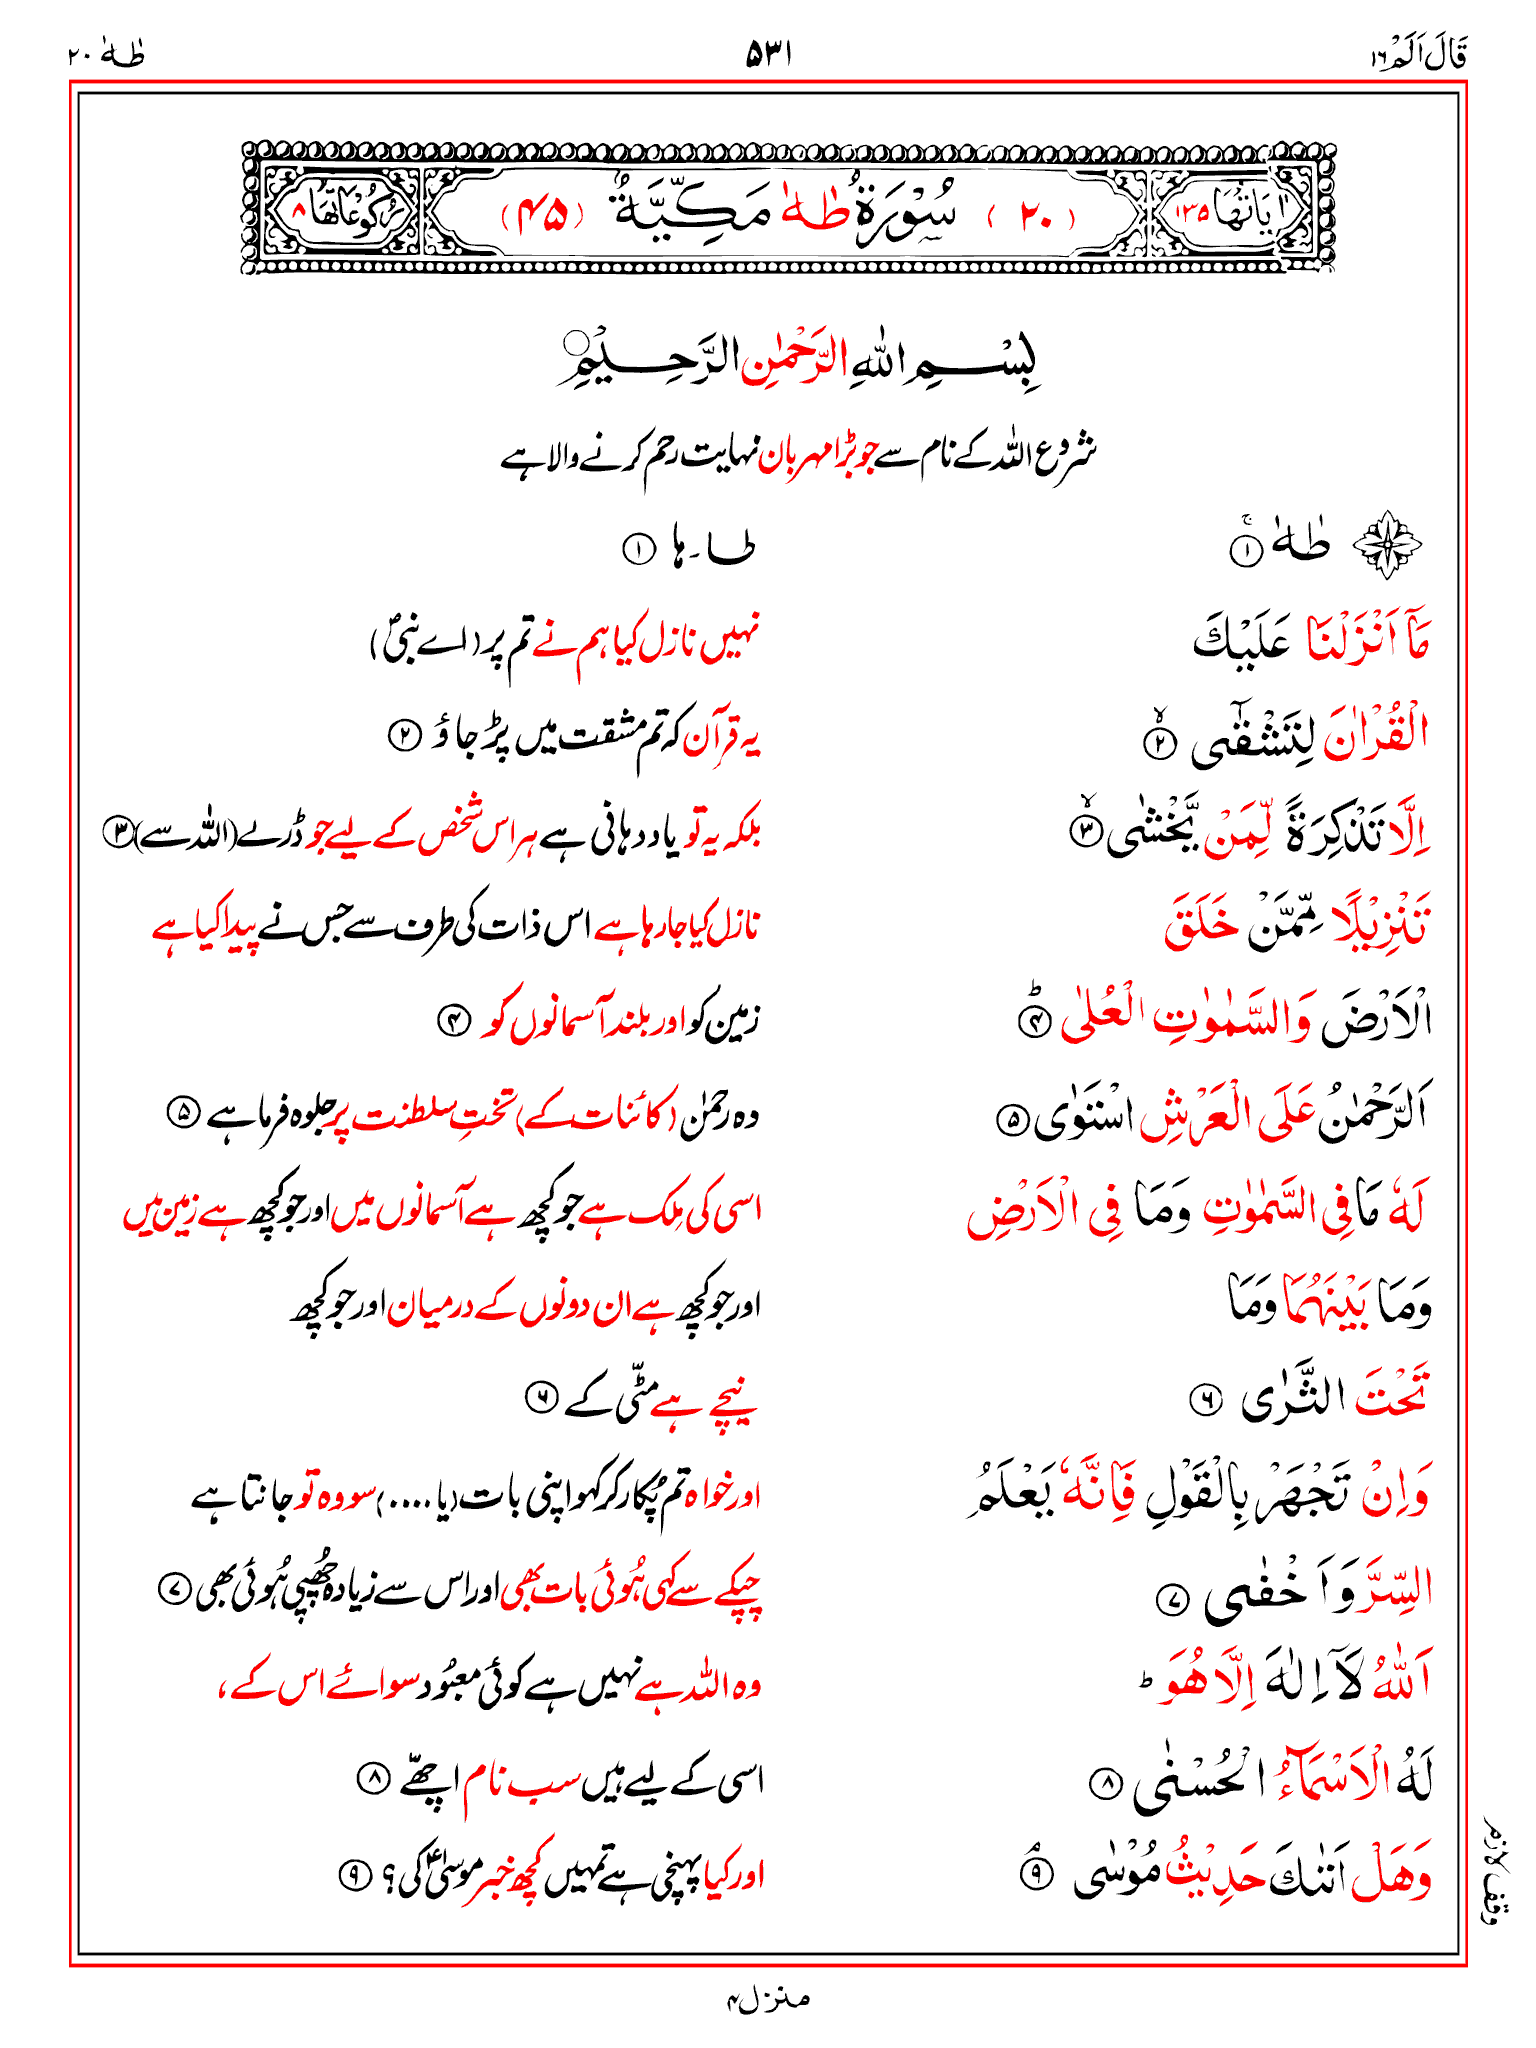 قَالَ اَلَمْ ۱۶
۵۳۱
طٰهٰ ۲۰
اٰیَاتُهَا ۱۳۵
(۲۰) سُوْرَةُ طٰهٰ مَكِّیَّةٌ (۴۵)
رُكُوْعَاتُهَا ۸
بِسْمِ اللّٰهِ الرَّحْمٰنِ الرَّحِیْمِ
شروع اللہ کے نام سے جو بڑا مہربان نہایت رحم کرنے والا ہے
طٰهٰ ۚ ﴿۱﴾ طا۔ ہا ﴿۱﴾
مَاۤ اَنْزَلْنَا عَلَیْكَ نہیں نازل کیا ہم نے تم پر (اے نبیؐ)
الْقُرْاٰنَ لِتَشْقٰۤی ۙ ﴿۲﴾ یہ قرآن کہ تم مشقت میں پڑ جاؤ ﴿۲﴾
اِلَّا تَذْكِرَةً لِّمَنْ یَّخْشٰی ۙ ﴿۳﴾ بلکہ یہ تو یاد دہانی ہے ہر اس شخص کے لیے جو ڈرے (اللہ سے) ﴿۳﴾
تَنْزِیْلًا مِّمَّنْ خَلَقَ نازل کیا جا رہا ہے اس ذات کی طرف سے جس نے پیدا کیا ہے
الْاَرْضَ وَالسَّمٰوٰتِ الْعُلٰی ؕ ﴿۴﴾ زمین کو اور بلند آسمانوں کو ﴿۴﴾
اَلرَّحْمٰنُ عَلَی الْعَرْشِ اسْتَوٰی ﴿۵﴾ وہ رحمٰن (کائنات کے) تختِ سلطنت پر جلوہ فرما ہے ﴿۵﴾
لَهٗ مَا فِی السَّمٰوٰتِ وَمَا فِی الْاَرْضِ اسی کی مِلک ہے جو کچھ ہے آسمانوں میں اور جو کچھ ہے زمین میں
وَمَا بَیْنَهُمَا وَمَا اور جو کچھ ہے ان دونوں کے درمیان اور جو کچھ
تَحْتَ الثَّرٰی ﴿۶﴾ نیچے ہے مٹّی کے ﴿۶﴾
وَاِنْ تَجْهَرْ بِالْقَوْلِ فَاِنَّهٗ یَعْلَمُ اور خواہ تم پُکار کر کہو اپنی بات (یا ....) سو وہ تو جانتا ہے
السِّرَّ وَاَخْفٰی ﴿۷﴾ چپکے سے کہی ہُوئی بات بھی اور اس سے زیادہ چُھپی ہُوئی بھی ﴿۷﴾
اَللّٰهُ لَاۤ اِلٰهَ اِلَّا هُوَ ؕ وہ اللہ ہے نہیں ہے کوئی معبُود سوائے اس کے،
لَهُ الْاَسْمَآءُ الْحُسْنٰی ﴿۸﴾ اسی کے لیے ہیں سب نام اچھّے ﴿۸﴾
وَهَلْ اَتٰىكَ حَدِیْثُ مُوْسٰی ۘ ﴿۹﴾ اور کیا پہنچی ہے تمہیں کچھ خبر موسیٰؑ کی؟ ﴿۹﴾
وقف لازم
منزل ۴